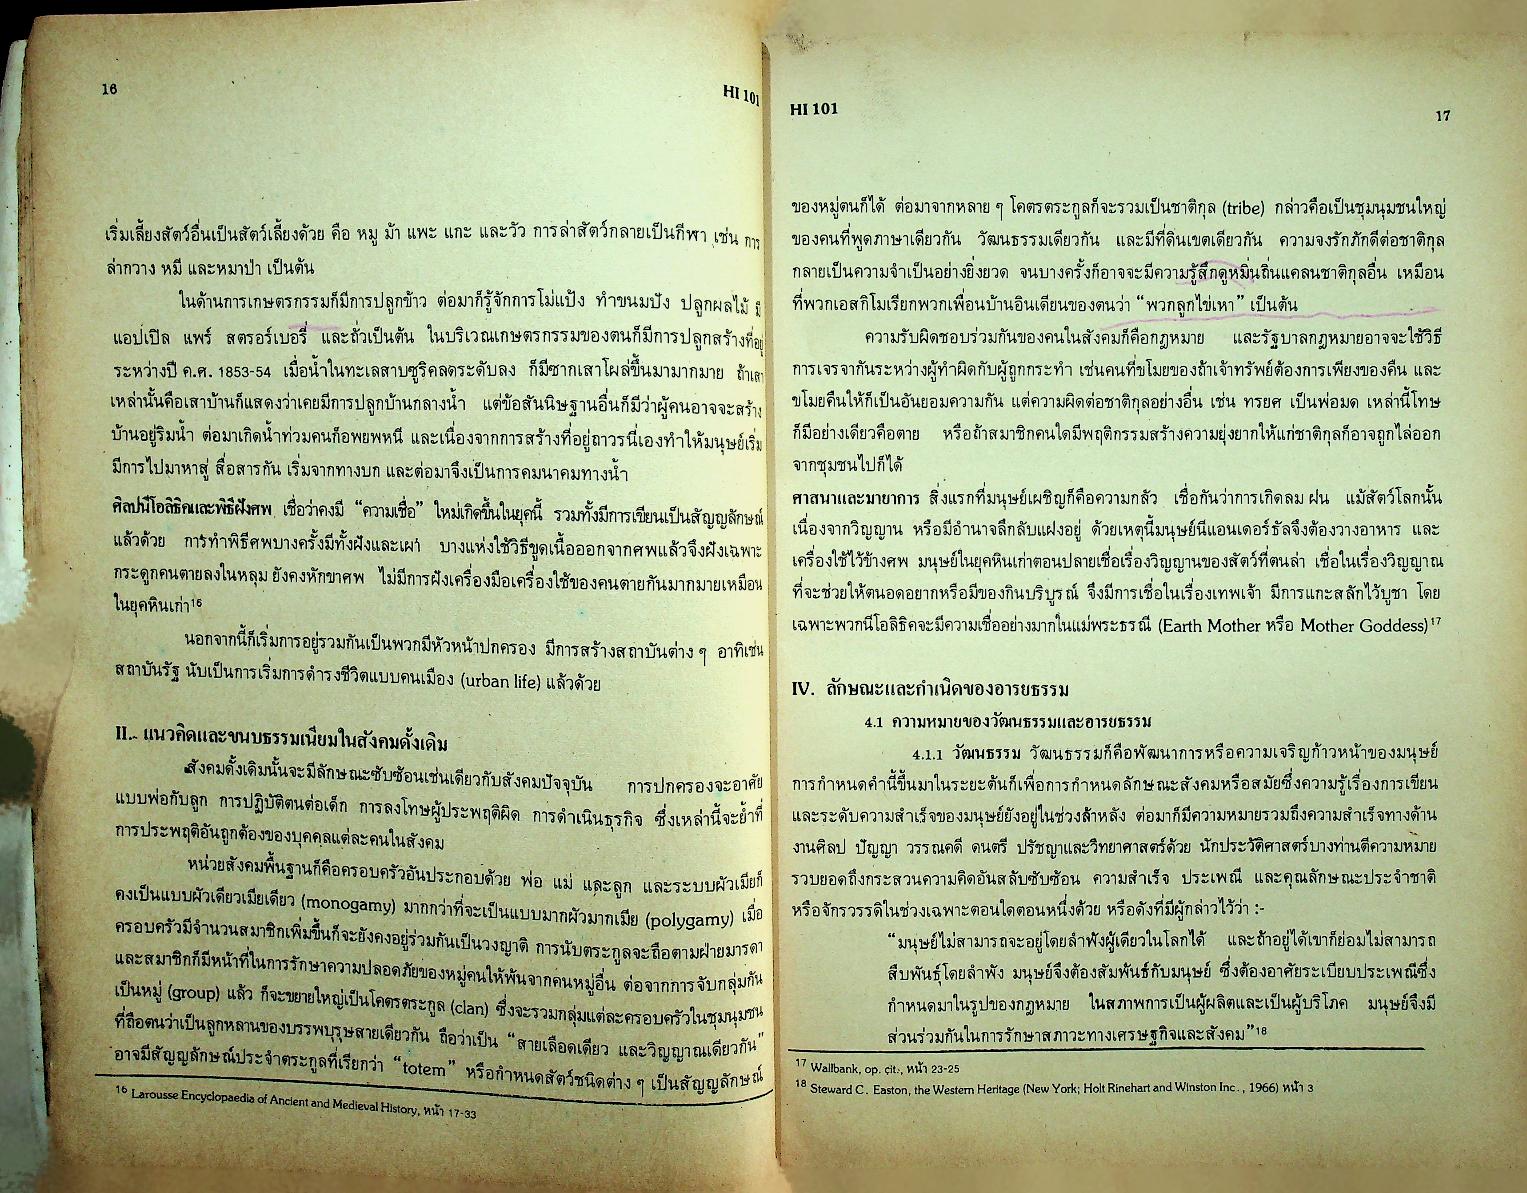 16
HI 101
เริ่มเลี้ยงสัตว์อื่นเป็นสัตว์เลี้ยงด้วย คือ หมู ม้า แพะ แกะ และวัว การล่าสัตว์กลายเป็นกีฬา เช่น การ
ล่ากวาง หมี และหมาป่า เป็นต้น
ในด้านการเกษตรกรรมก็มีการปลูกข้าว ต่อมาก็รู้จักการโม่แป้ง ทำขนมปัง ปลูกผลไม้ มี
แอปเปิล แพร์ สตรอร์เบอรี่ และถั่วเป็นต้น ในบริเวณเกษตรกรรมของตนก็มีการปลูกสร้างที่อยู่
ระหว่างปี ค.ศ. 1853-54 เมื่อน้ำในทะเลสาบซูริคลดระดับลง ก็มีซากเสาโผล่ขึ้นมามากมาย ถ้าเสา
เหล่านั้นคือเสาบ้านก็แสดงว่าเคยมีการปลูกบ้านกลางน้ำ แต่ข้อสันนิษฐานอื่นก็มีว่าผู้คนอาจจะสร้าง
บ้านอยู่ริมน้ำ ต่อมาเกิดน้ำท่วมคนก็อพยพหนี และเนื่องจากการสร้างที่อยู่ถาวรนี่เองทำให้มนุษย์เริ่ม
มีการไปมาหาสู่ สื่อสารกัน เริ่มจากทางบก และต่อมาจึงเป็นการคมนาคมทางน้ำ
ศิลปนีโอลิธิคและพิธีฝังศพ เชื่อว่าคงมี “ความเชื่อ” ใหม่เกิดขึ้นในยุคนี้ รวมทั้งมีการเขียนเป็นสัญญลักษณ์
แล้วด้วย การทำพิธีศพบางครั้งมีทั้งฝังและเผา บางแห่งใช้วิธีขูดเนื้อออกจากศพแล้วจึงฝังเฉพาะ
กระดูกคนตายลงในหลุม ยังคงหักขาศพ ไม่มีการฝังเครื่องมือเครื่องใช้ของคนตายกันมากมายเหมือน
ในยุคหินเก่า16
นอกจากนี้ก็เริ่มการอยู่รวมกันเป็นพวกมีหัวหน้าปกครอง มีการสร้างสถาบันต่าง ๆ อาทิเช่น
สถาบันรัฐ นับเป็นการเริ่มการดำรงชีวิตแบบคนเมือง (urban life) แล้วด้วย
II. แนวคิดและขนบธรรมเนียมในสังคมดั้งเดิม
สังคมดั้งเดิมนั้นจะมีลักษณะซับซ้อนเช่นเดียวกับสังคมปัจจุบัน การปกครองจะอาศัย
แบบพ่อกับลูก การปฏิบัติตนต่อเด็ก การลงโทษผู้ประพฤติผิด การดำเนินธุรกิจ ซึ่งเหล่านี้จะย้ำที่
การประพฤติอันถูกต้องของบุคคลแต่ละคนในสังคม
หน่วยสังคมพื้นฐานก็คือครอบครัวอันประกอบด้วย พ่อ แม่ และลูก และระบบผัวเมียก็
คงเป็นแบบผัวเดียวเมียเดียว (monogamy) มากกว่าที่จะเป็นแบบมากผัวมากเมีย (polygamy) เมื่อ
ครอบครัวมีจำนวนสมาชิกเพิ่มขึ้นก็จะยังคงอยู่ร่วมกันเป็นวงญาติ การนับตระกูลจะถือตามฝ่ายมารดา
และสมาชิกก็มีหน้าที่ในการรักษาความปลอดภัยของหมู่คนให้พ้นจากคนหมู่อื่น ต่อจากการจับกลุ่มกัน
เป็นหมู่ (group) แล้ว ก็จะขยายใหญ่เป็นโคตรตระกูล (clan) ซึ่งจะรวมกลุ่มแต่ละครอบครัวในชุมนุมชน
ที่ถือตนว่าเป็นลูกหลานของบรรพบุรุษสายเดียวกัน ถือว่าเป็น “สายเลือดเดียว และวิญญาณเดียวกัน”
อาจมีสัญญลักษณ์ประจำตระกูลที่เรียกว่า “totem” หรือกำหนดสัตว์ชนิดต่าง ๆ เป็นสัญญลักษณ์
16 Larousse Encyclopaedia of Ancient and Medieval History, หน้า 17-33
HI 101
17
ของหมู่ตนก็ได้ ต่อมาจากหลาย ๆ โคตรตระกูลก็จะรวมเป็นชาติกุล (tribe) กล่าวคือเป็นชุมนุมชนใหญ่
ของคนที่พูดภาษาเดียวกัน วัฒนธรรมเดียวกัน และมีที่ดินเขตเดียวกัน ความจงรักภักดีต่อชาติกุล
กลายเป็นความจำเป็นอย่างยิ่งยวด จนบางครั้งก็อาจจะมีความรู้สึกดูหมิ่นถิ่นแคลนชาติกุลอื่น เหมือน
ที่พวกเอสกิโมเรียกพวกเพื่อนบ้านอินเดียนของตนว่า “พวกลูกไข่เหา” เป็นต้น
ความรับผิดชอบร่วมกันของคนในสังคมก็คือกฎหมาย และรัฐบาลกฎหมายอาจจะใช้วิธี
การเจรจากันระหว่างผู้ทำผิดกับผู้ถูกกระทำ เช่นคนที่ขโมยของถ้าเจ้าทรัพย์ต้องการเพียงของคืน และ
ขโมยคืนให้ก็เป็นอันยอมความกัน แต่ความผิดต่อชาติกุลอย่างอื่น เช่น ทรยศ เป็นพ่อมด เหล่านี้โทษ
ก็มีอย่างเดียวคือตาย หรือถ้าสมาชิกคนใดมีพฤติกรรมสร้างความยุ่งยากให้แก่ชาติกุลก็อาจถูกไล่ออก
จากชุมชนไปก็ได้
ศาสนาและมายาการ สิ่งแรกที่มนุษย์เผชิญก็คือความกลัว เชื่อกันว่าการเกิดลม ฝน แม้สัตว์โลกนั้น
เนื่องจากวิญญาน หรือมีอำนาจลึกลับแฝงอยู่ ด้วยเหตุนี้มนุษย์นีแอนเดอร์ธัลจึงต้องวางอาหาร และ
เครื่องใช้ไว้ข้างศพ มนุษย์ในยุคหินเก่าตอนปลายเชื่อเรื่องวิญญานของสัตว์ที่ตนล่า เชื่อในเรื่องวิญญาณ
ที่จะช่วยให้ตนอดอยากหรือมีของกินบริบูรณ์ จึงมีการเชื่อในเรื่องเทพเจ้า มีการแกะสลักไว้บูชา โดย
เฉพาะพวกนีโอลิธิคจะมีความเชื่ออย่างมากในแม่พระธรณี (Earth Mother หรือ Mother Goddess)17
IV. ลักษณะและกำเนิดของอารยธรรม
4.1 ความหมายของวัฒนธรรมและอารยธรรม
4.1.1 วัฒนธรรม วัฒนธรรมก็คือพัฒนาการหรือความเจริญก้าวหน้าของมนุษย์
การกำหนดคำนี้ขึ้นมาในระยะต้นก็เพื่อการกำหนดลักษณะสังคมหรือสมัยซึ่งความรู้เรื่องการเขียน
และระดับความสำเร็จของมนุษย์ยังอยู่ในช่วงล้าหลัง ต่อมาก็มีความหมายรวมถึงความสำเร็จทางด้าน
งานศิลป ปัญญา วรรณคดี ดนตรี ปรัชญาและวิทยาศาสตร์ด้วย นักประวัติศาสตร์บางท่านตีความหมาย
รวบยอดถึงกระสวนความคิดอันสลับซับซ้อน ความสำเร็จ ประเพณี และคุณลักษณะประจำชาติ
หรือจักรวรรดิในช่วงเฉพาะตอนใดตอนหนึ่งด้วย หรือดังที่มีผู้กล่าวไว้ว่า :-
“มนุษย์ไม่สามารถจะอยู่โดยลำพังผู้เดียวในโลกได้ และถ้าอยู่ได้เขาก็ย่อมไม่สามารถ
สืบพันธุ์โดยลำพัง มนุษย์จึงต้องสัมพันธ์กับมนุษย์ ซึ่งต้องอาศัยระเบียบประเพณีซึ่ง
กำหนดมาในรูปของกฎหมาย ในสภาพการเป็นผู้ผลิตและเป็นผู้บริโภค มนุษย์จึงมี
ส่วนร่วมกันในการรักษาสภาวะทางเศรษฐกิจและสังคม”18
17 Wallbank, op. cit., หน้า 23-25
18 Steward C. Easton, the Western Heritage (New York; Holt Rinehart and Winston Inc., 1966) หน้า 3